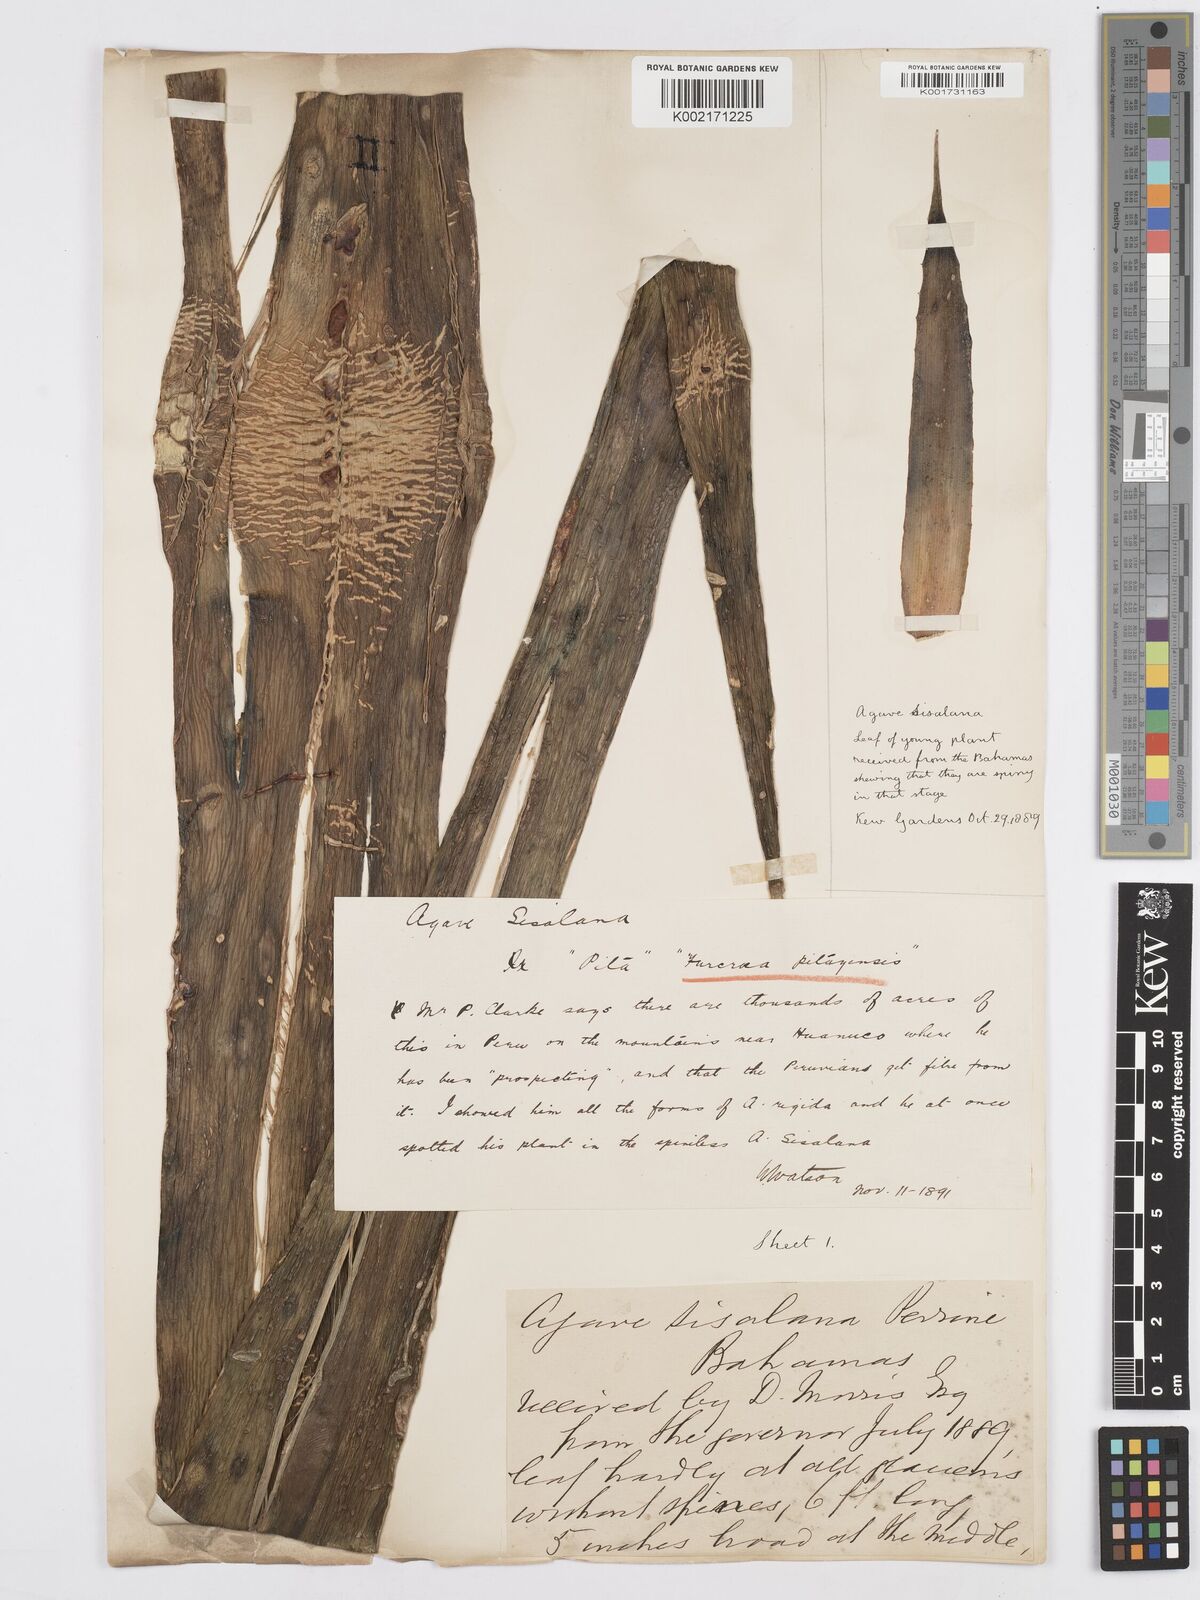 ROYAL BOTANIC GARDENS KEW
K002171225
ROYAL BOTANIC GARDENS KEW
K001731163
II
Agave sisalana
Leaf of young plant
received from the Bahamas
shewing that they are spiny
in that stage
Kew Gardens Oct. 29. 1889
Agave Sisalana
"Pita" "Furcraea pitayensis"
Mr P. Clarke says there are thousands of acres of
this in Peru on the mountains near Huanuco where he
has been "prospecting", and that the Peruvians get fibre from
it. I showed him all the forms of A. rigida and he at once
spotted his plant in the spineless A. Sisalana
W Watson
Nov. 11-1891
Sheet 1.
Agave sisalana Perrine
Bahamas
received by D. Morris Esq
from the governor July 1889,
leaf hardly at all glaucous
without spines, 6 ft. long,
5 inches broad at the middle,
inches
centimeters
Density
Don Williams
M001030
Kew
Royal Botanic Gardens
0 1 2 3 4 5 6 7 8 9 10
cm
copyright reserved